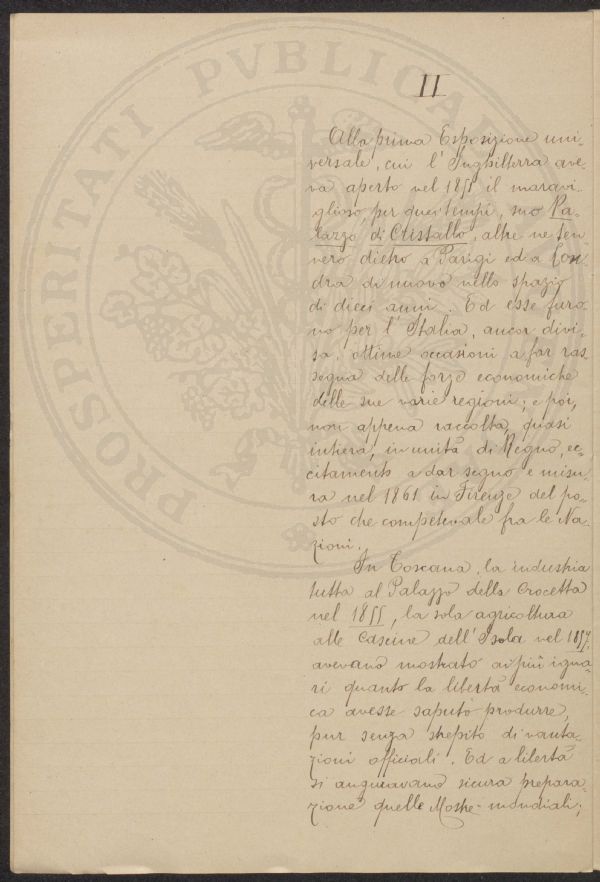 PROSPERITATI PVBLICAE
II
Alla prima Esposizione uni-
versale, cui l'Inghilterra ave-
va aperto nel 1851 il maravi-
glioso, per quei tempi, suo Pa-
lazzo di Cristallo, altre ne ten
nero dietro a Parigi ed a Lon
dra di nuovo nello spazio
di dieci anni. Ed esse furo-
no per l'Italia, ancor divi-
sa, ottime occasioni a far ras
segna delle forze economiche
delle sue varie regioni; e poi,
non appena raccolta, quasi
intiera, in unità di Regno, ec-
citamento a dar segno e misu-
ra nel 1861 in Firenze del po-
sto che competevale fra le Na-
zioni.
In Toscana, la industria
tutta al Palazzo della Crocetta
nel 1855, la sola agricoltura
alle Cascine dell'Isola nel 1857,
avevano mostrato ai più igna-
ri quanto la libertà economi-
ca avesse saputo produrre,
pur senza strepito di vanta-
zioni officiali. Ed a libertà
si auguravano sicura prepara-
zione quelle Mostre mondiali;